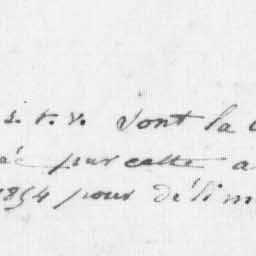 s. t. v. sont la
par cette a
1854 pour délim